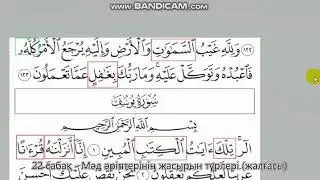 WWW.BANDICAM.COM
وَلِلَّهِ غَيْبُ السَّمَٰوَٰتِ وَالْأَرْضِ وَإِلَيْهِ يُرْجَعُ الْأَمْرُ كُلُّهُ
فَاعْبُدْهُ وَتَوَكَّلْ عَلَيْهِ وَمَا رَبُّكَ بِغَٰفِلٍ عَمَّا تَعْمَلُونَ ١٢٣
سُورَةُ يُوسُفَ
بِسْمِ اللَّهِ الرَّحْمَٰنِ الرَّحِيمِ
الٓر تِلْكَ ءَايَٰتُ الْكِتَٰبِ الْمُبِينِ ١ إِنَّا أَنزَلْنَٰهُ قُرْءَٰنًا
22 сабақ – Мад әріптерінің жасырын түрлері (жалғасы)
عَرَبِيًّا لَّعَلَّكُمْ تَعْقِلُونَ ٢ نَحْنُ نَقُصُّ عَلَيْكَ أَحْسَنَ